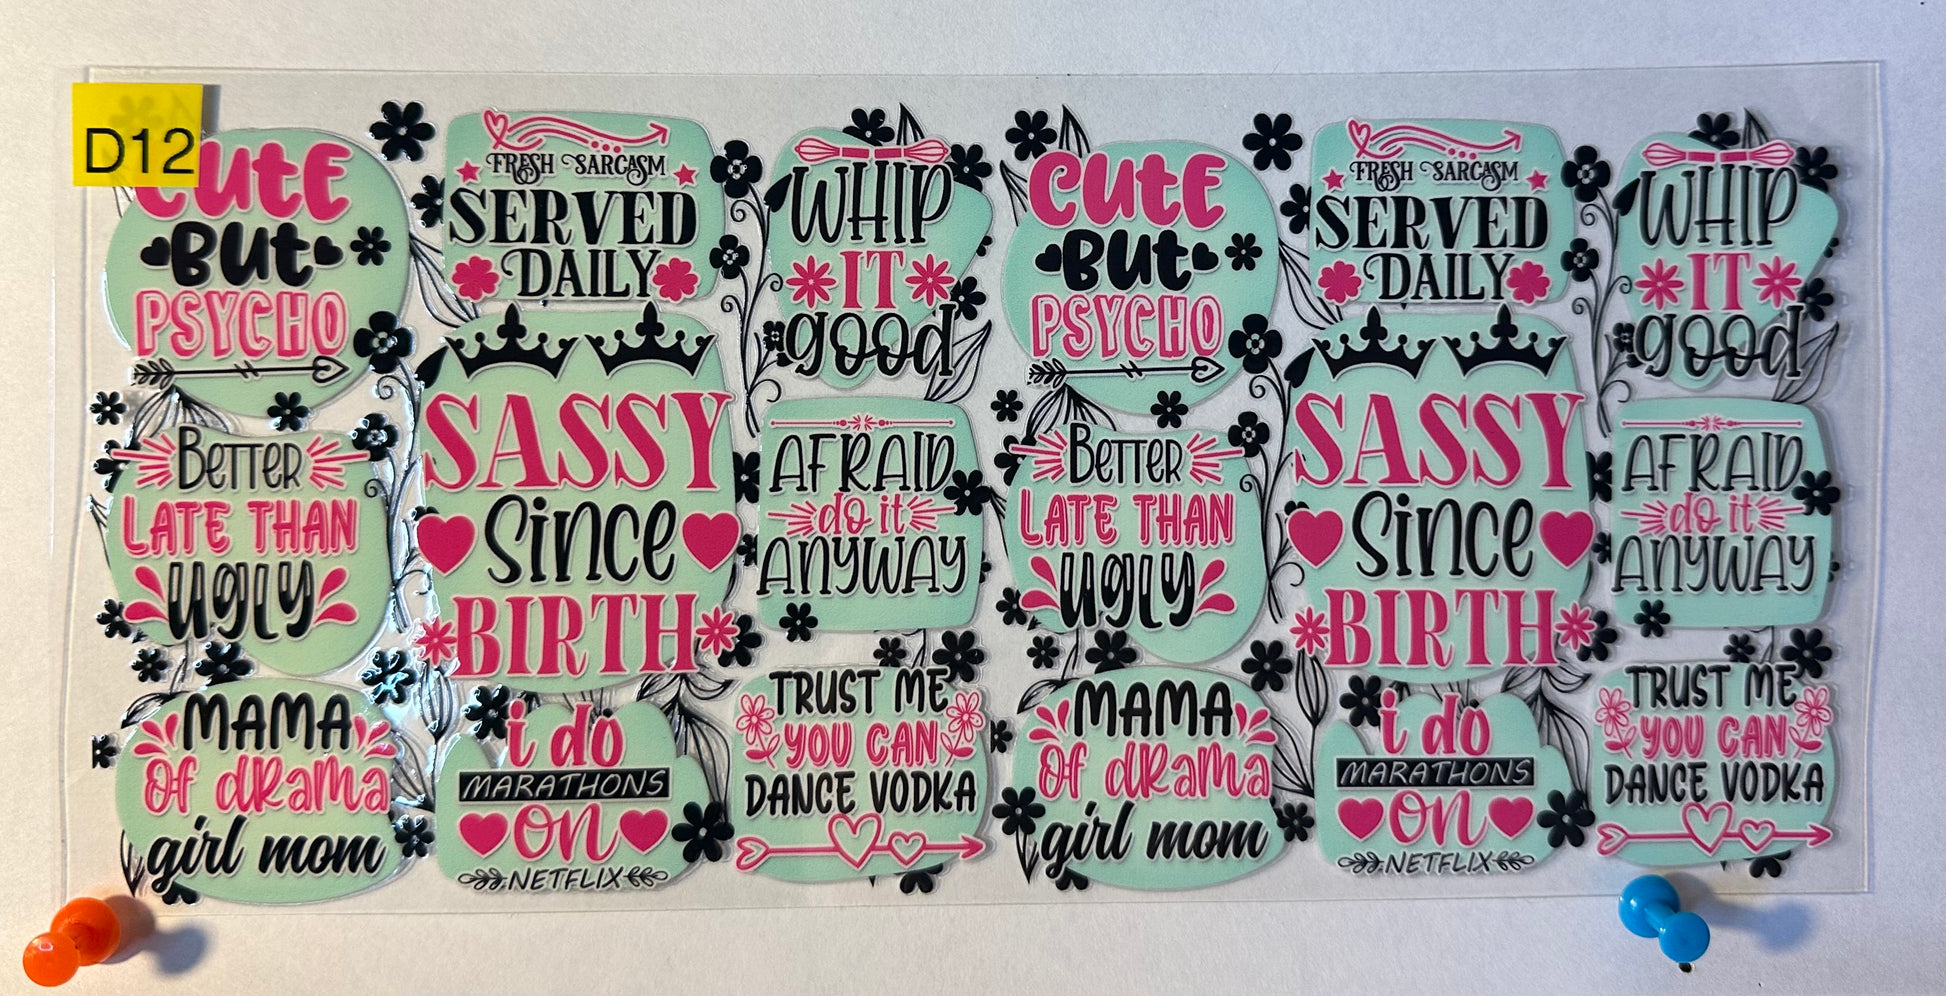 D12
CUtE
BUt
PSYCHO
FRESH SARCASM
SERVED
DAILY
WHIP
IT
good
CUtE
BUt
PSYCHO
FRESH SARCASM
SERVED
DAILY
WHIP
IT
good
BETTER
LATE THAN
UGLY
SASSY
SINCE
BIRTH
AFRAID
do it
ANYWAY
BETTER
LATE THAN
UGLY
SASSY
SINCE
BIRTH
AFRAID
do it
ANYWAY
MAMA
Of dRama
girl mom
i do
MARATHONS
on
NETFLIX
TRUST ME
YOU CAN
DANCE VODKA
MAMA
Of dRama
girl mom
i do
MARATHONS
on
NETFLIX
TRUST ME
YOU CAN
DANCE VODKA